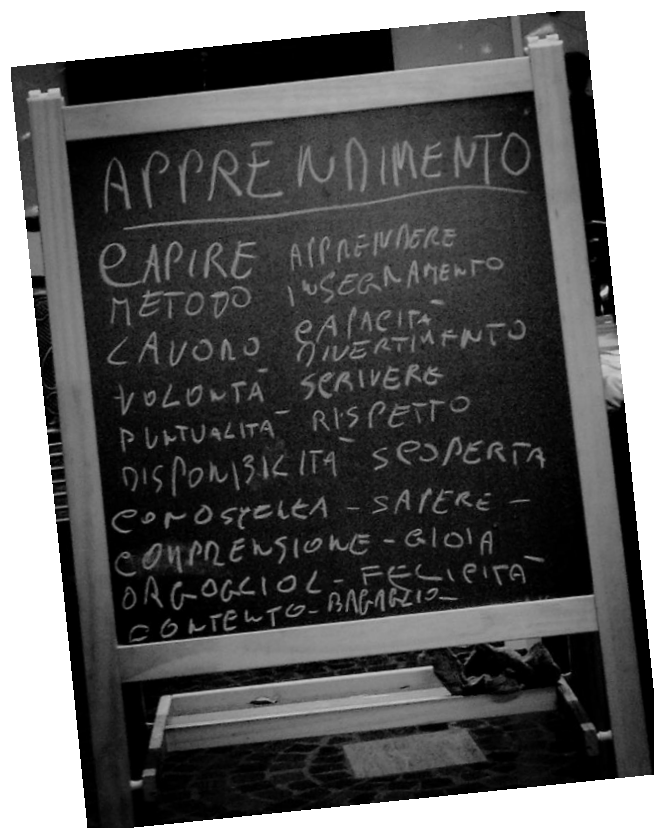 APPRENDIMENTO
CAPIRE APPRENDERE
METODO INSEGNAMENTO
LAVORO CAPACITÀ
DIVERTIMENTO
VOLONTÀ SCRIVERE
PUNTUALITÀ RISPETTO
DISPONIBILITÀ SCOPERTA
CONOSCENZA - SAPERE -
COMPRENSIONE - GIOIA
ORGOGLIO - FELICITÀ
CONTENTO - BAGAGLIO -